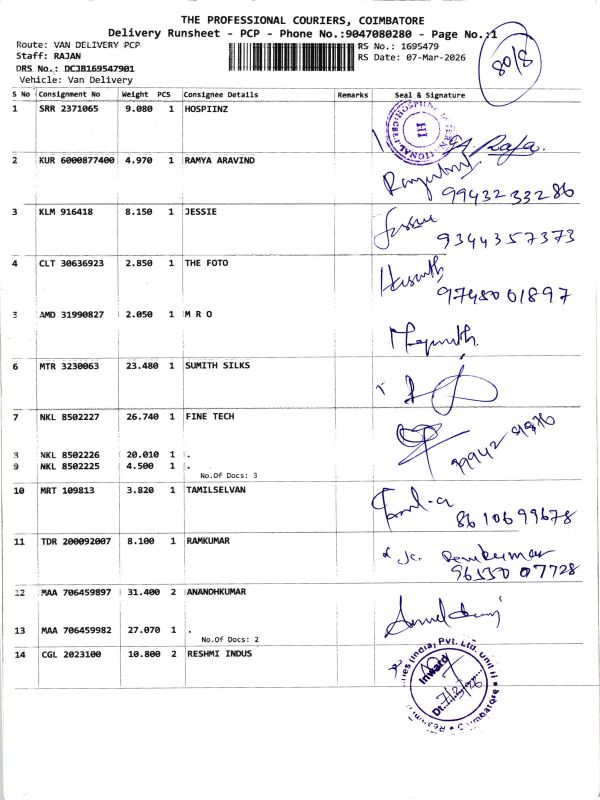 THE PROFESSIONAL COURIERS, COIMBATORE
Delivery Runsheet - PCP - Phone No.:9047080280 - Page No.:1
Route: VAN DELIVERY PCP RS No.: 1695479
Staff: RAJAN RS Date: 07-Mar-2026
DRS No.: DCJB169547901
Vehicle: Van Delivery
80/8
S No Consignment No Weight PCS Consignee Details Remarks Seal & Signature
1 SRR 2371065 9.080 1 HOSPIINZ
HI
2 KUR 6000877400 4.970 1 RAMYA ARAVIND
99432 33286
3 KLM 916418 8.150 1 JESSIE Jessie
9344357373
4 CLT 30636923 2.850 1 THE FOTO
5 AMD 31990827 2.050 1 M R O
6 MTR 3230063 23.480 1 SUMITH SILKS
7 NKL 8502227 26.740 1 FINE TECH
8 NKL 8502226 20.010 1 .
9 NKL 8502225 4.500 1 .
No.Of Docs: 3
10 MRT 109813 3.820 1 TAMILSELVAN
86106 99678
11 TDR 200092007 8.100 1 RAMKUMAR Ramkumar
07728
12 MAA 706459897 31.400 2 ANANDHKUMAR
13 MAA 706459982 27.070 1 .
No.Of Docs: 2
14 CGL 2023100 10.800 2 RESHMI INDUS
(India) Pvt. Ltd. Unit II
Inward